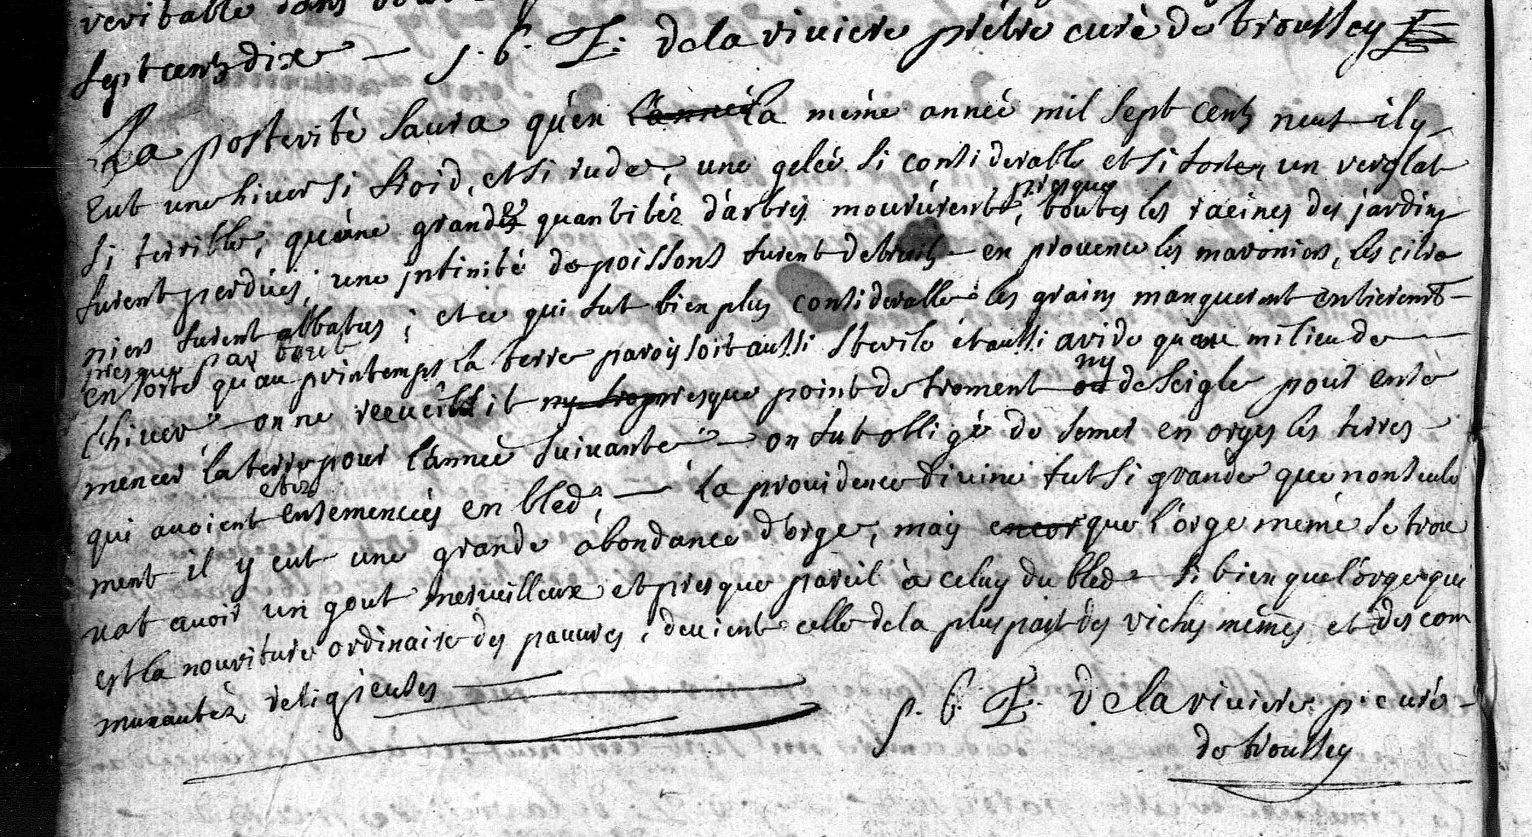 veritable dans
sept centz dix — p. C. F. De la riviere prêtre curé de troussey
La posterité saura qu'en l'année la même année mil sept centz neuf il y
Eut une hiver si froid, et si rude, une gelée si considerable et si forte, un verglat
si terrible, qu'une grande quantitéz d'arbres moururent, presque toutes les racines des jardins
furent perdües, une infinité de poissons furent detruits – en provence les maroniers, les citro
niers furent abbatus ; et ce qui fut bien plus considerable les grains manquerent entierement
presque par tout
en sorte qu'au printemps la terre paroissoit aussi sterile et aussi aride qu'au milieu de
l'hiver – on ne recueillit ny trop presque point de froment ou ny de seigle pour ense
mencer la terre pour l'année suivante – on fut obligé de semer en orges les terres
qui avoient etez ensemencées en bled, — la providence divine fut si grande que non seule
ment il y eut une grande abondance d'orge, mais encor que l'orge même se trou
vat avoir un gout merveilleux et presque pareil à celuy du bled – si bien que l'orge qui
est la nouriture ordinaire des pauvres, devient celle de la plus part des riches mêmes et des com
munautéz religieuses
p. C. F. De la riviere p. curé
de troussey